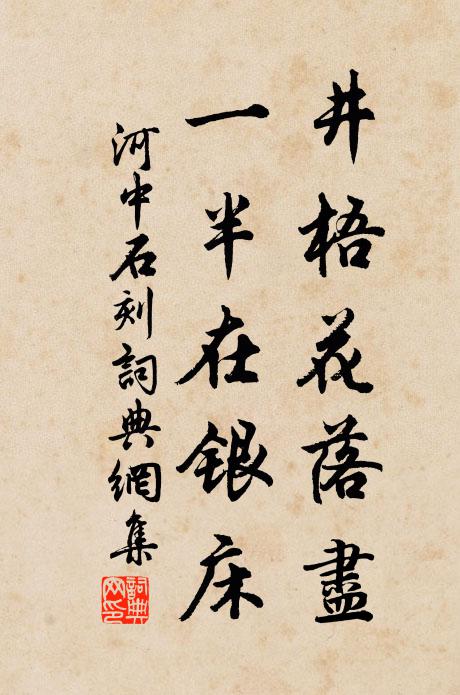 井梧花落盡
一半在銀床
河中石刻詞典網集
詞典網印